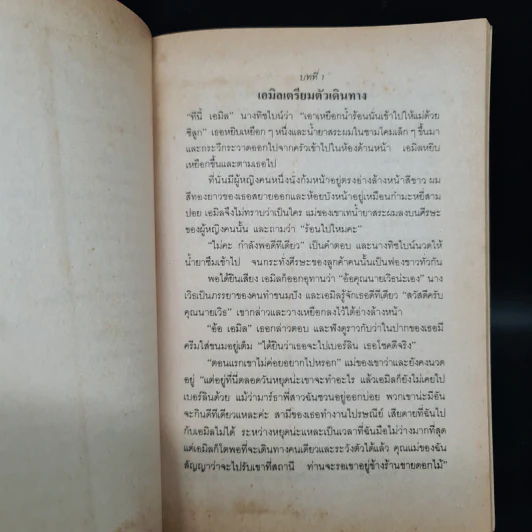 บทที่ 1
เอมิลเตรียมตัวเดินทาง
“ทีนี้ เอมิล” นางทิชไบน์ว่า “เอาเหยือกน้ำร้อนนั่นเข้าไปให้แม่ด้วย
ซิลูก” เธอหยิบเหยือก ๆ หนึ่งและน้ำยาสระผมในชามโคมเล็ก ๆ ขึ้นมา
และกระวีกระวาดออกไปจากครัวเข้าไปในห้องด้านหน้า เอมิลหยิบ
เหยือกขึ้นและตามเธอไป
ที่นั่นมีผู้หญิงคนหนึ่งนั่งก้มหน้าอยู่ตรงอ่างล้างหน้าสีขาว ผม
สีทองยาวของเธอสยายออกและห้อยบังหน้าอยู่เหมือนกำมะหยี่สาม
ปอย เอมิลจึงไม่ทราบว่าเป็นใคร แม่ของเขาเทน้ำยาสระผมลงบนศีรษะ
ของผู้หญิงคนนั้น และถามว่า “ร้อนไปไหมคะ”
“ไม่ค่ะ กำลังพอดีทีเดียว” เป็นคำตอบ และนางทิชไบน์นวดให้
น้ำยาซึมเข้าไป จนกระทั่งศีรษะของลูกค้าคนนั้นเป็นฟองขาวทั่วกัน
พอได้ยินเสียง เอมิลก็ออกอุทานว่า “อ้อคุณนายเวิธน่ะเอง” นาง
เวิธเป็นภรรยาของคนทำขนมปัง และเอมิลรู้จักเธอดีทีเดียว “สวัสดีครับ
คุณนายเวิธ” เขากล่าวและวางเหยือกลงไว้ใต้อ่างล้างหน้า
“อ้อ เอมิล” เธอกล่าวตอบ และฟังดูราวกับว่าในปากของเธอมี
ครีมใส่ขนมอยู่เต็ม “ได้ยินว่าเธอจะไปเบอร์ลิน เธอโชคดีจริง”
“ตอนแรกเขาไม่ค่อยอยากไปหรอก” แม่ของเขาว่าและยังคงนวด
อยู่ “แต่อยู่ที่นี่ตลอดวันหยุดน่ะเขาจะทำอะไร แล้วเอมิลก็ยังไม่เคยไป
เบอร์ลินด้วย แม้ว่ามาร์ธาพี่สาวฉันชวนอยู่ออกบ่อย พวกเขาน่ะมีอัน
จะกินดีทีเดียวแหละค่ะ สามีของเธอทำงานไปรษณีย์ เสียดายที่ฉันไป
กับเอมิลไม่ได้ ระหว่างหยุดน่ะแหละเป็นเวลาที่ฉันมือไม่ว่างมากที่สุด
แต่เอมิลก็โตพอที่จะเดินทางคนเดียวและระวังตัวได้แล้ว คุณแม่ของฉัน
สัญญาว่าจะไปรับเขาที่สถานี ท่านจะรอเขาอยู่ข้างร้านขายดอกไม้”